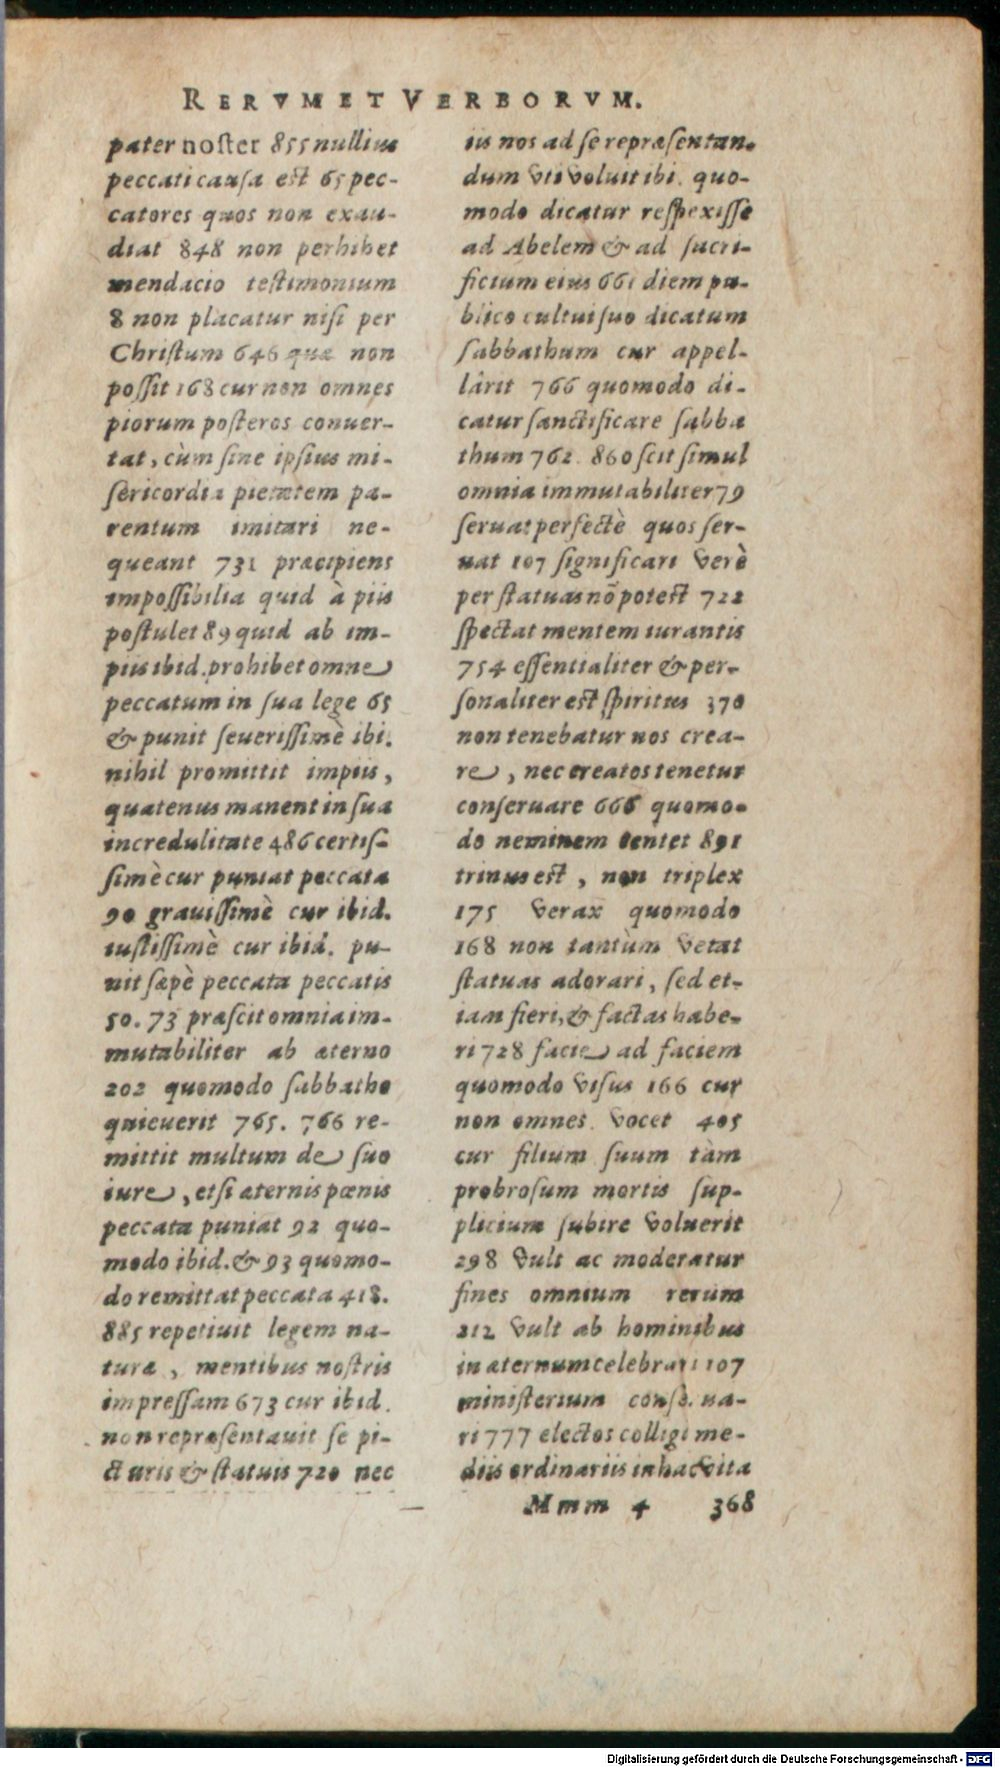 RERVM ET VERBORVM.
pater noster 855 nullius
peccati causa est 65 pec-
catores quos non exau-
diat 848 non perhibet
mendacio testimonium
8 non placatur nisi per
Christum 646 quæ non
possit 168 cur non omnes
piorum posteros conuer-
tat, cùm sine ipsius mi-
sericordia pietatem pa-
rentum imitari ne-
queant 731 præcipiens
impossibilia quid à piis
postulet 89 quid ab im-
piis ibid. prohibet omne
peccatum in sua lege 65
& punit seuerissimè ibi.
nihil promittit impiis,
quatenus manent in sua
incredulitate 486 certis-
simè cur puniat peccata
90 grauissimè cur ibid.
iustissimè cur ibid. pu-
nit sæpè peccata peccatis
50. 73 præscit omnia im-
mutabiliter ab æterno
202 quomodo sabbatho
quieuerit 765. 766 re-
mittit multum de suo
iure, etsi æternis pœnis
peccata puniat 92 quo-
modo ibid. & 93 quomo-
do remittat peccata 418.
885 repetiuit legem na-
turæ, mentibus nostris
impressam 673 cur ibid.
non repræsentauit se pi-
cturis & statuis 720 nec
iis nos ad se repræsentan-
dum vti voluit ibi. quo-
modo dicatur respexisse
ad Abelem & ad sacri-
ficium eius 661 diem pu-
blico cultui suo dicatum
sabbathum cur appel-
lârit 766 quomodo di-
catur sanctificare sabba
thum 762. 860 scit simul
omnia immutabiliter 79
seruat perfectè quos ser-
uat 107 significari verè
per statuas nõ potest 722
spectat mentem iurantis
754 essentialiter & per-
sonaliter est spiritus 370
non tenebatur nos crea-
re, nec creatos tenetur
conseruare 666 quomo-
do neminem tentet 891
trinus est, non triplex
175 verax quomodo
168 non tantùm vetat
statuas adorari, sed et-
iam fieri, & factas habe-
ri 728 facie ad faciem
quomodo visus 166 cur
non omnes vocet 405
cur filium suum tàm
probrosum mortis sup-
plicium subire voluerit
298 vult ac moderatur
fines omnium rerum
212 vult ab hominibus
in æternum celebrari 107
ministerium conser ua-
ri 777 electos colligi me-
diis ordinariis in hac vita
Mmm 4 368
Digitalisierung gefördert durch die Deutsche Forschungsgemeinschaft - DFG